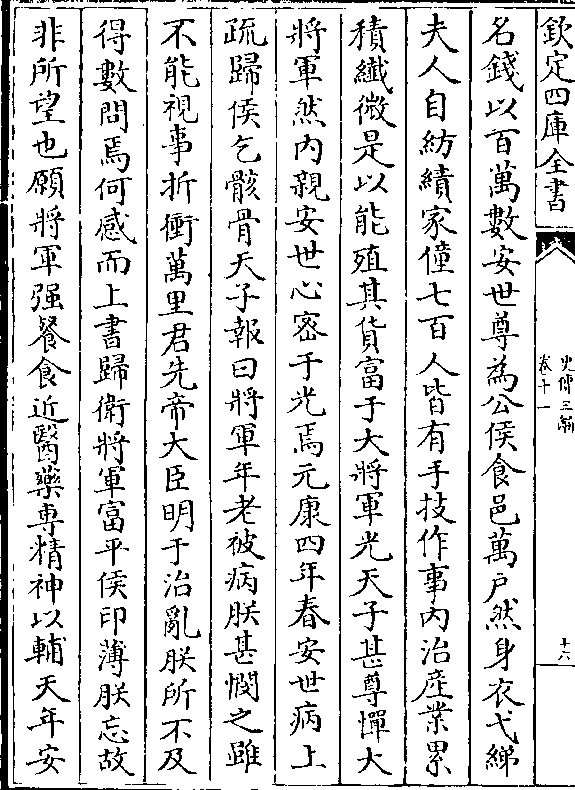 欽定四庫全書
史傳三編
卷十一
十六
名錢以百萬數安世尊為公侯食邑萬户然身衣弋綈
夫人自紡績家僮七百人皆有手技作事內治產業累
積纖微是以能殖其貨富于大將軍光天子甚尊憚大
將軍然內親安世心宻于光焉元康四年春安世病上
疏歸侯乞骸骨天子報曰將軍年老被病朕甚憫之雖
不能視事折衝萬里君先帝大臣明于治亂朕所不及
得數問焉何感而上書歸衛將軍富平侯印薄朕忘故
非所望也願將軍强餐食近醫藥專精神以輔天年安